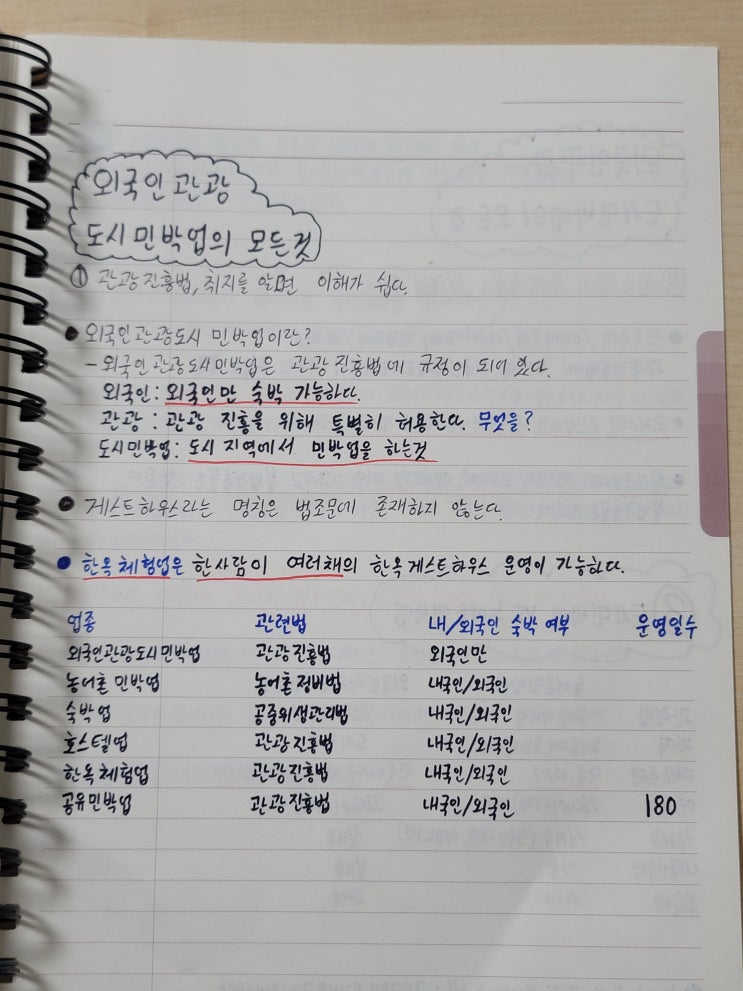 외국인 관광
도시 민박업의 모든것
① 관광진흥법, 취지를 알면 이해가 쉽다.
● 외국인관광도시 민박업이란?
- 외국인 관광도시민박업은 관광진흥법에 규정이 되어 있다.
외국인: 외국인만 숙박 가능하다.
관광: 관광 진흥을 위해 특별히 허용한다. 무엇을?
도시민박업: 도시 지역에서 민박업을 하는것
● 게스트하우스라는 명칭은 법조문에 존재하지 않는다.
● 한옥체험업은 한사람이 여러채의 한옥게스트하우스 운영이 가능하다.
업종 관련법 내/외국인 숙박 여부 운영일수
외국인관광도시민박업 관광진흥법 외국인만
농어촌 민박업 농어촌정비법 내국인/외국인
숙박업 공중위생관리법 내국인/외국인
호스텔업 관광진흥법 내국인/외국인
한옥체험업 관광진흥법 내국인/외국인
공유민박업 관광진흥법 내국인/외국인 180